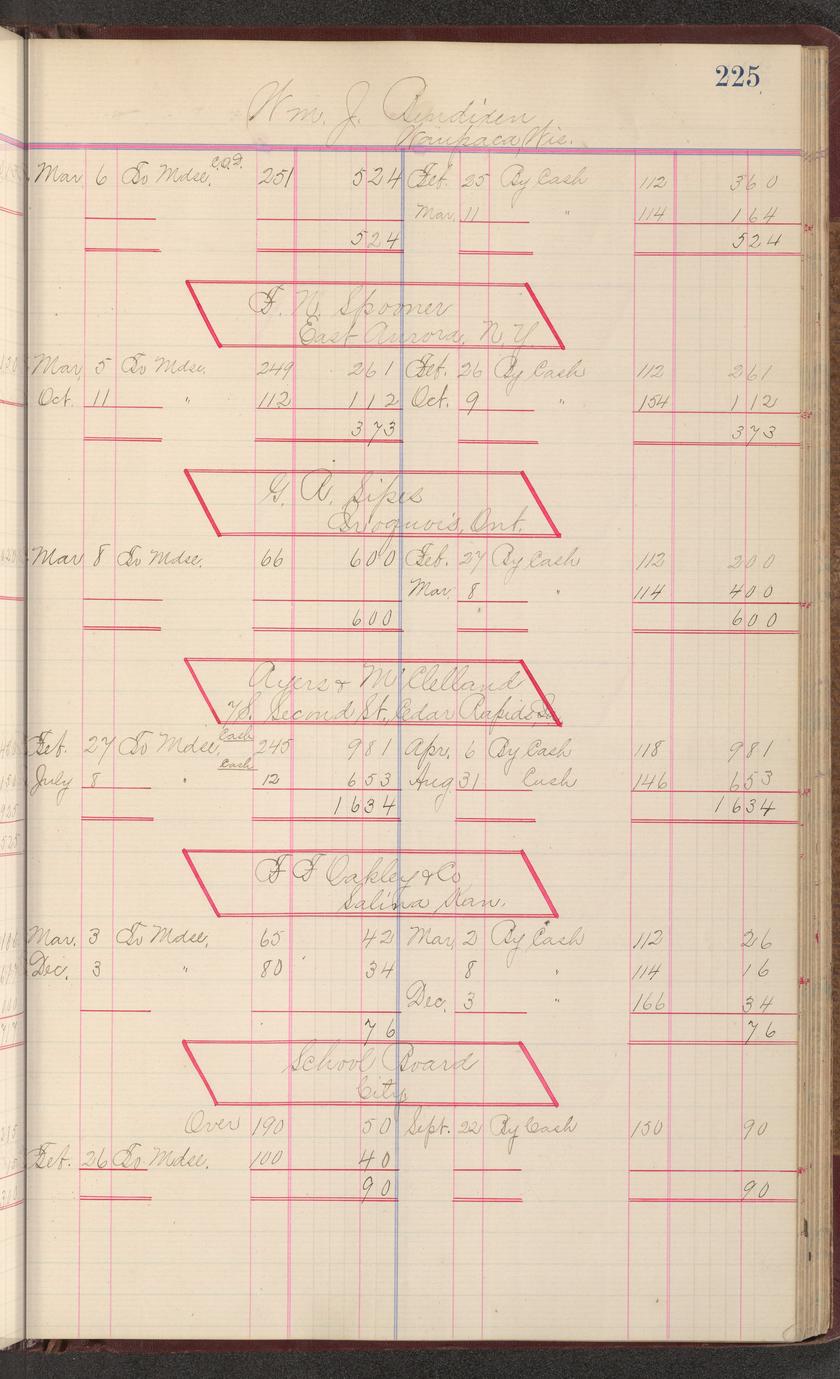 225
Wm. J. Bendixen
Waupaca, Wis.
Mar 6 To Mdse. C.O.D. 251 524 Feb. 25 By Cash 112 360
Mar. 11 " 114 164
524 524
F. N. Spooner
East Aurora, N.Y.
Mar. 5 To Mdse. 249 261 Feb. 26 By Cash 112 261
Oct. 11 " 112 112 Oct. 9 " 154 112
373 373
G. A. Sipes
Iroquois, Ont.
Mar 8 To Mdse. 66 600 Feb. 27 By Cash 112 200
Mar. 8 " 114 400
600 " 600
Ayers & McClelland
7 S. Second St., Cedar Rapids, Ia.
Feb. 27 To Mdse. Cash 245 981 Apr. 6 By Cash 118 981
July 8 " Cash 12 653 Aug 31 Cash 146 653
1634 1634
F F Oakley & Co
Salina Kan.
Mar. 3 To Mdse. 65 42 Mar. 2 By Cash 112 26
Dec. 3 " 80 34 8 " 114 16
Dec. 3 " 166 34
76 76
School Board
City
Over 190 50 Sept. 22 By Cash 150 90
Feb. 26 To Mdse. 100 40
90 90